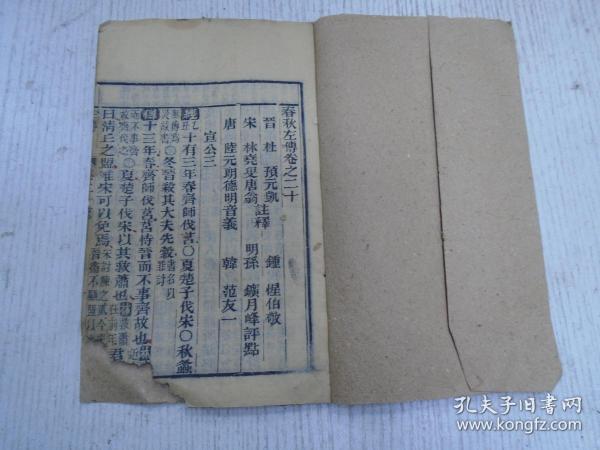 春秋左傳卷之二十
晉 杜 預元凱
宋 林堯叟唐翁 註釋
唐 陸元朗德明音義
鍾 惺伯敬
明孫 鑛月峰 評點
韓 范友一
宣公三
經 十有三年春齊師伐莒○夏楚子伐宋○秋螽
○冬晉殺其大夫先縠 書名以
傳十三年春齊師伐莒莒恃晉而不事齊故也
夏楚子伐宋以其救蕭也 君
曰清丘之盟唯宋可以免焉
孔夫子旧书网
www.kongfz.com